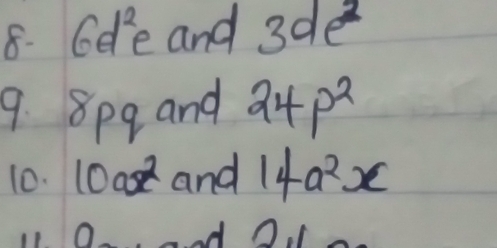 8. 6d²e and 3de²
9. 8pq and 24p²
10. 10ax² and 14a²x